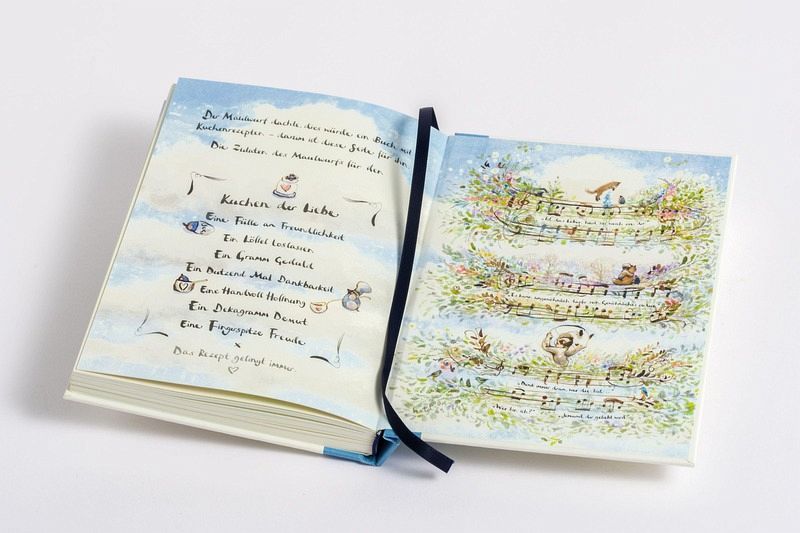 Der Maulwurf dachte, dies würde ein Buch mit
Kuchenrezepten – darum ist diese Seite für ihn.
Die Zutaten des Maulwurfs für den
Kuchen der Liebe
Eine Fülle an Freundlichkeit
Ein Löffel loslassen
Ein Gramm Geduld
Ein Dutzend Mal Dankbarkeit
Eine Handvoll Hoffnung
Ein Dekagramm Demut
Eine Fingerspitze Freude
x
Das Rezept gelingt immer.
„Denk immer dran, wer du bist."
„Wer bin ich?" „Jemand, der geliebt wird."